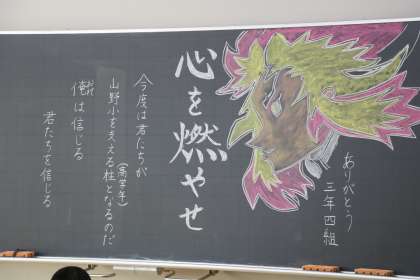 ありがとう
三年四組
心を燃やせ
今度は君たちが
(高学年)
山野小を支える柱となるのだ
俺は信じる
君たちを信じる